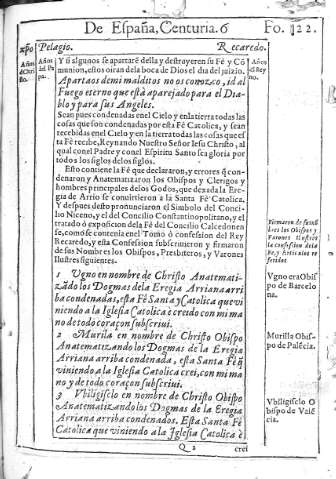 De España, Centuria. 6 Fo. 122.
xpo Pelagio. Recaredo.
Años dChristo.
Años del Papa.
Años de Rey no.
Y si algunos se apartarẽ della y destruyeren su Fè y Cómunion, estos oiran dela boca de Dios el dia del juizio.
Apartaos de mi malditos no os conozco, id al
Fuego eterno que està aparejado para el Diablo y para sus Angeles.
Sean pues condenadas en el Cielo y en la tierra todas las
cosas que son condenadas por esta Fè Catolica, y sean
recibidas en el Cielo y en la tierra todas las cosas que esta Fè recibe, Reynando Nuestro Señor Iesu Christo, al
qual con el Padre y con el Espiritu Santo sea gloria por
todos los siglos de los siglos.
Esto contiene la Fè que declararon, y errores q̃ condenaron y Anatematizaron los Obispos y Clerigos y
hombres principales de los Godos, que dexada la Eregia de Arrio se conuirtieron a la Santa Fè Catolica.
Y despues desto pronunciaron el Simbolo del Concilio Niceno, y el del Concilio Constantinopolitano, y el
tratado ò exposicion de la Fè del Concilio Calcedonense, como se contenia en el Tomo ò confession del Rey
Recaredo, y esta Confession subscriuieron y firmaron
de sus Nombres los Obispos, Presbiteros, y Varones
Illustres siguientes.
Firmaron de sus nõbres los Obispos y Varones Ilustres
1 Vgno en nombre de Christo Anatematizãdo los Dogmas dela Eregia Arriana arriba condenadas, esta Fè Santa y Catolica que viniendo a la Iglesia Catolica creido con mi mano de todo coraçon subscriui.
Vgno era Obispo de Barcelona.
2 Murila en nombre de Christo Obispo
Anatematizando los Dogmas de la Eregia
Arriana arriba condenada, esta Santa Fè q̃
viniendo a la Iglesia Catolica crei, con mi mano y de todo coraçon subscriui.
Murilla Obispo de Palẽcia.
3 Vbiligisclo en nombre de Christo Obispo
Anatematizando los Dogmas de la Eregia
Arriana arriba condenados. Esta Santa Fè
Catolica que viniendo a la Iglesia Catolica è
Vbiligisclo Obispo de Valẽcia.
Q 2 crei